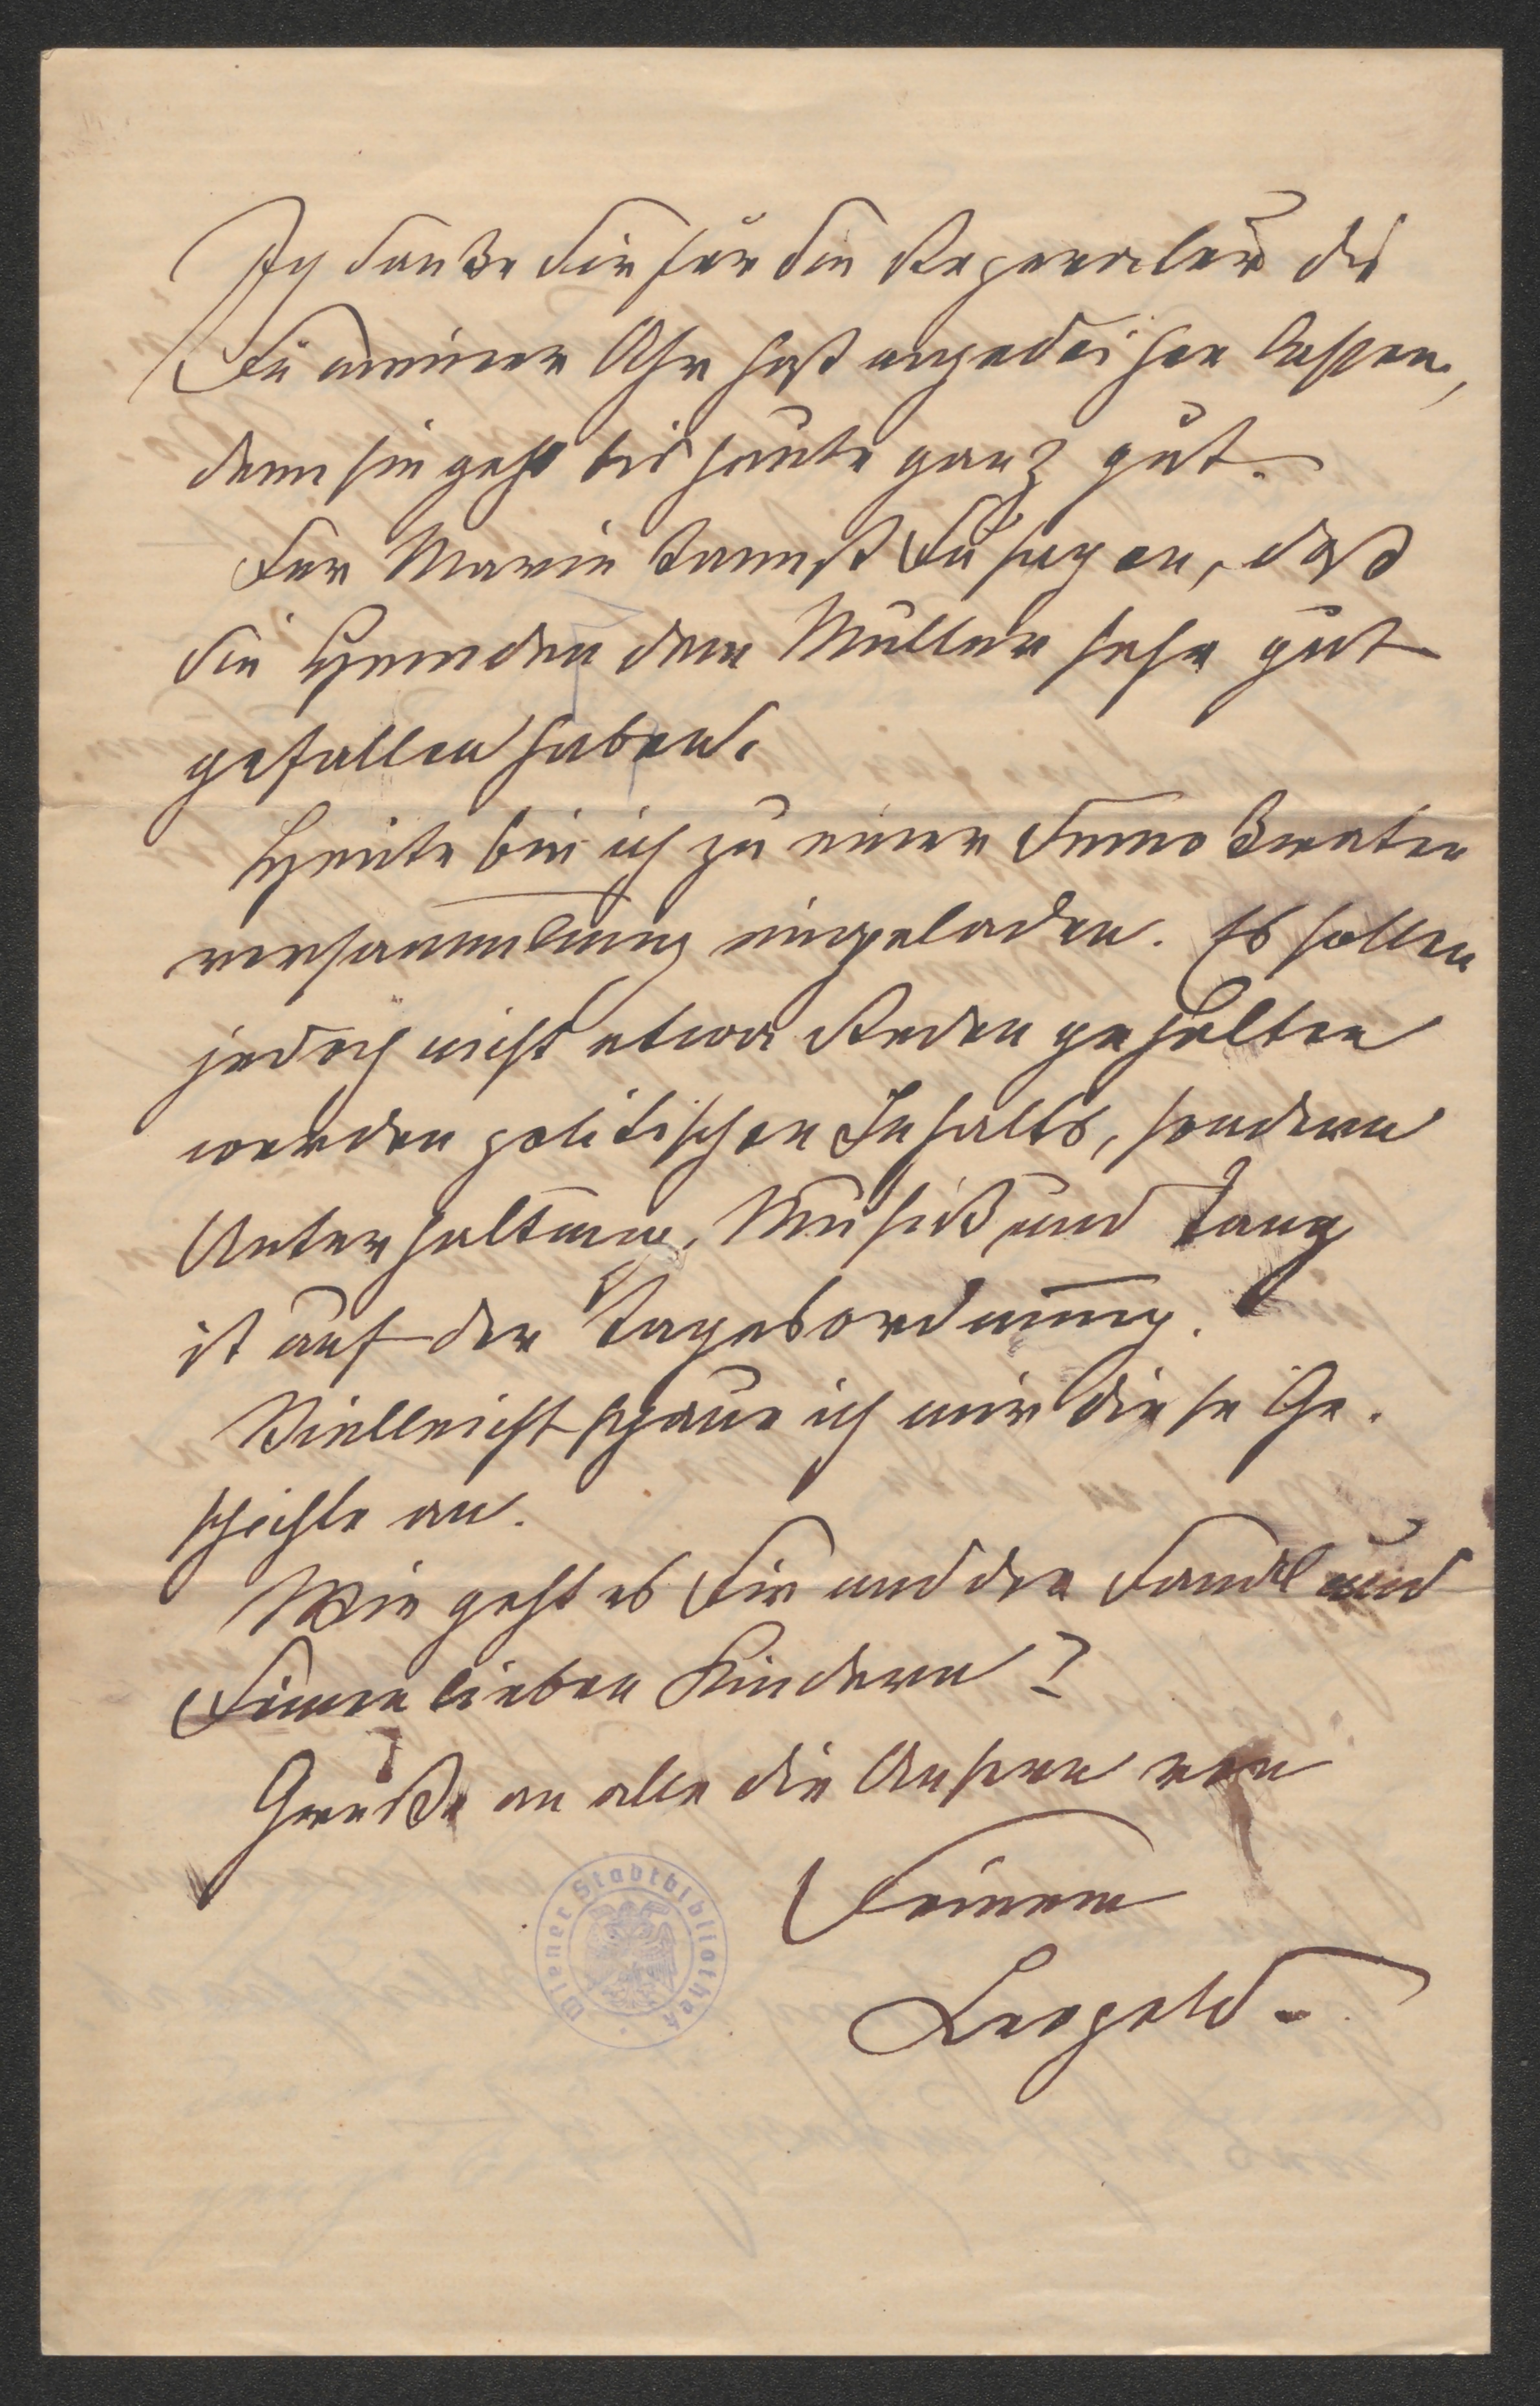 Ich danke Dir für die Reperatur die
Du meiner Uhr hast angedeihen lassen,
denn sie geht bis heute ganz gut.
Der Marie kannst Du sagen, daß
die Hemden dem Müller sehr gut
gefallen haben.
Heute bin ich zu einer Demokraten
versammlung eingeladen. Es sollen
jedoch nicht etwa Reden gehalten
werden politischen Inhalts, sondern
Unterhaltung, Musik und Tanz
ist auf der Tagesordnung.
Vielleicht schaue ich mir diese Ge-
schichte an.
Wie geht es Dir und der und
Deinen lieben Kindern?
Grüße an alle die Unsern von
Deinem
Leopold.
Wiener Stadtbibliothek